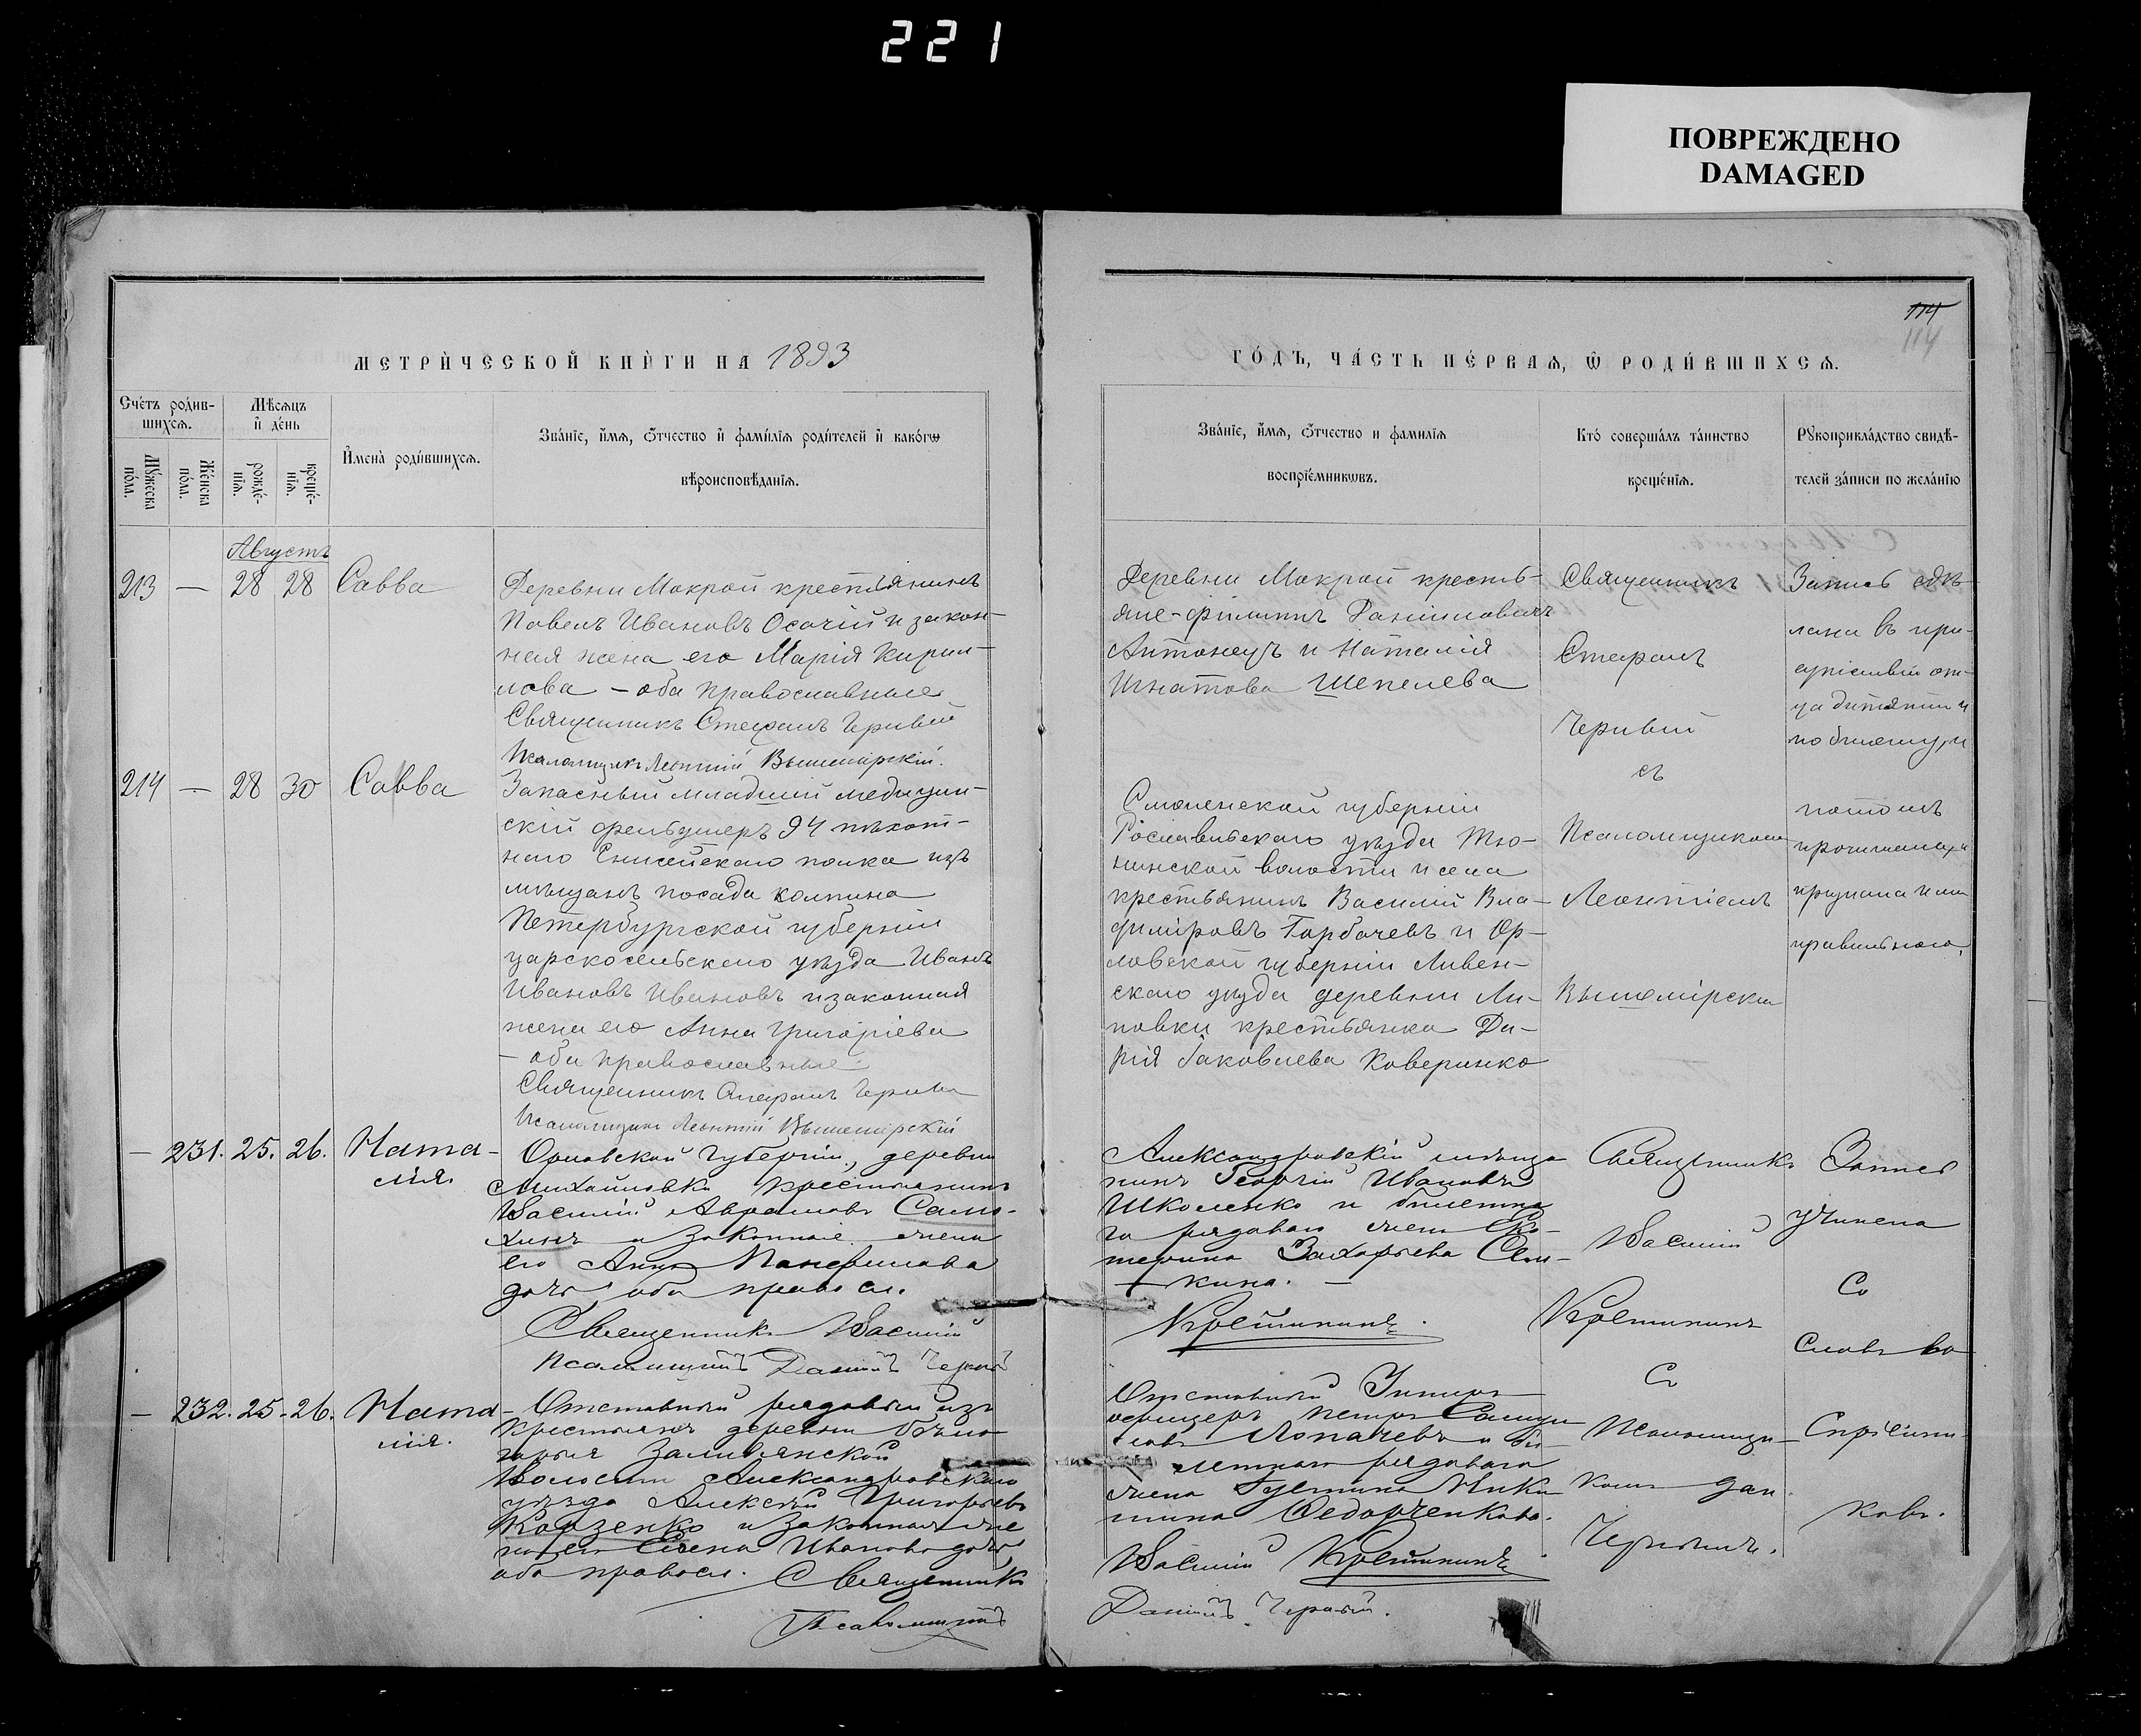 221
ПОВРЕЖДЕНО
DAMAGED
114
114
МЕТРИ́ЧЕСКОЙ КНИ́ГИ НА 1893
ГО́ДЪ, ЧА́СТЬ ПЕ́РВАѦ, Ѡ РОДИ́ВШИХСѦ.
Сче́тъ роди́в-
шихсѧ.
Мѣсѧцъ
и де́нь
Имена̀ роди́вшихсѧ.
Зва́нїе, и́мѧ, о́тчество и фами́лїѧ роди́телей и како́гѡ
вѣроисповѣ́данїѧ.
Мꙋ́жеска
по́ла.
Же́нска
по́ла.
рожде́-
нїѧ.
креще́-
нїѧ.
Зва́нїе, и́мѧ, о́тчество и фамилїѧ
воспрїе́мникѡвъ.
Кто́ соверша́лъ та́инство
креще́нїѧ.
Рꙋкоприкла́дство свидѣ́-
телей за́писи по жела́нїю
Августъ
213 — 28 28 Савва
Деревни Мокрой крестьянинъ
Павелъ Ивановъ Осочій и закон-
ная жена его Марія Кирил-
лова - оба православные
Священникъ Стефанъ Черивій
Псаломщикъ Леонтій Вышемірскій.
Деревни Мокрой кресть-
яне - Филиппъ
Антонецъ и Наталія
Игнатова Шепелева
Священникъ
Стефанъ
Черивій
съ
Псаломщикомъ
Леонтіемъ
Вышемірским
Запись сдѣ-
лана въ при-
сутствіи от-
ца дитяти и
по оному, и
потомъ
прочитана и
признана имъ
правильною.
214 — 28 30 Савва
Запасный младшій медицин-
скій фельдшеръ 94 пѣхот-
наго Енисейскаго полка изъ
мѣщанъ посада Колпина
Петербургской губерніи
Царскосельскаго уѣзда Иванъ
Ивановъ Ивановъ и законная
жена его Анна Григоріева
- оба православные
Священникъ Стефанъ Черивій
Псаломщикъ Леонтій Вышемірскій
Смоленской губерніи
Рославльскаго уѣзда Тю-
нинской волости и села
крестьянинъ Василій Вла-
диміровъ Горбачевъ и Ор-
ловской губерніи Ливен-
скаго уѣзда деревни Ли-
повки крестьянка Да-
рія Іаковлева Коверинко
— 231. 25. 26. Ната-
лія
Орловской Губерніи, деревни
Михайловки крестьянинъ
Василій Аврамовъ Само-
хинъ и законная жена
его Анна Панфилова
дочь оба правосл.
Священникъ Василій
Псаломщикъ Даніилъ Черный
Александровскій мѣща-
нинъ Георгій Ивановъ
Школенко и билетна-
го рядоваго жена Ека-
терина Захарьева Сем-
кина. —
Крѣтининъ.
Священникъ
Василій
Крѣтининъ
Съ
Псаломщи-
комъ Дан.
Чернымъ.
Запись
учинена
Со
Словъ во-
спріемни-
ковъ.
— 232. 25. 26. Ната-
лія.
Отставный рядовый изъ
крестьянъ деревни Бѣло-
горья Заливянской
волости Александровскаго
уѣзда Алексѣй Григорьевъ
Коазенко и законная же-
на его Елена Иванова дочь,
оба правосл. Священникъ
Псаломщикъ
Отставный Унтеръ
офицеръ Петръ Самуи-
ловъ Лопачевъ и би-
летнаго рядоваго
жена Іустина Ники-
тина Федорченкова.
Василій Крѣтининъ
Даніилъ Черный.